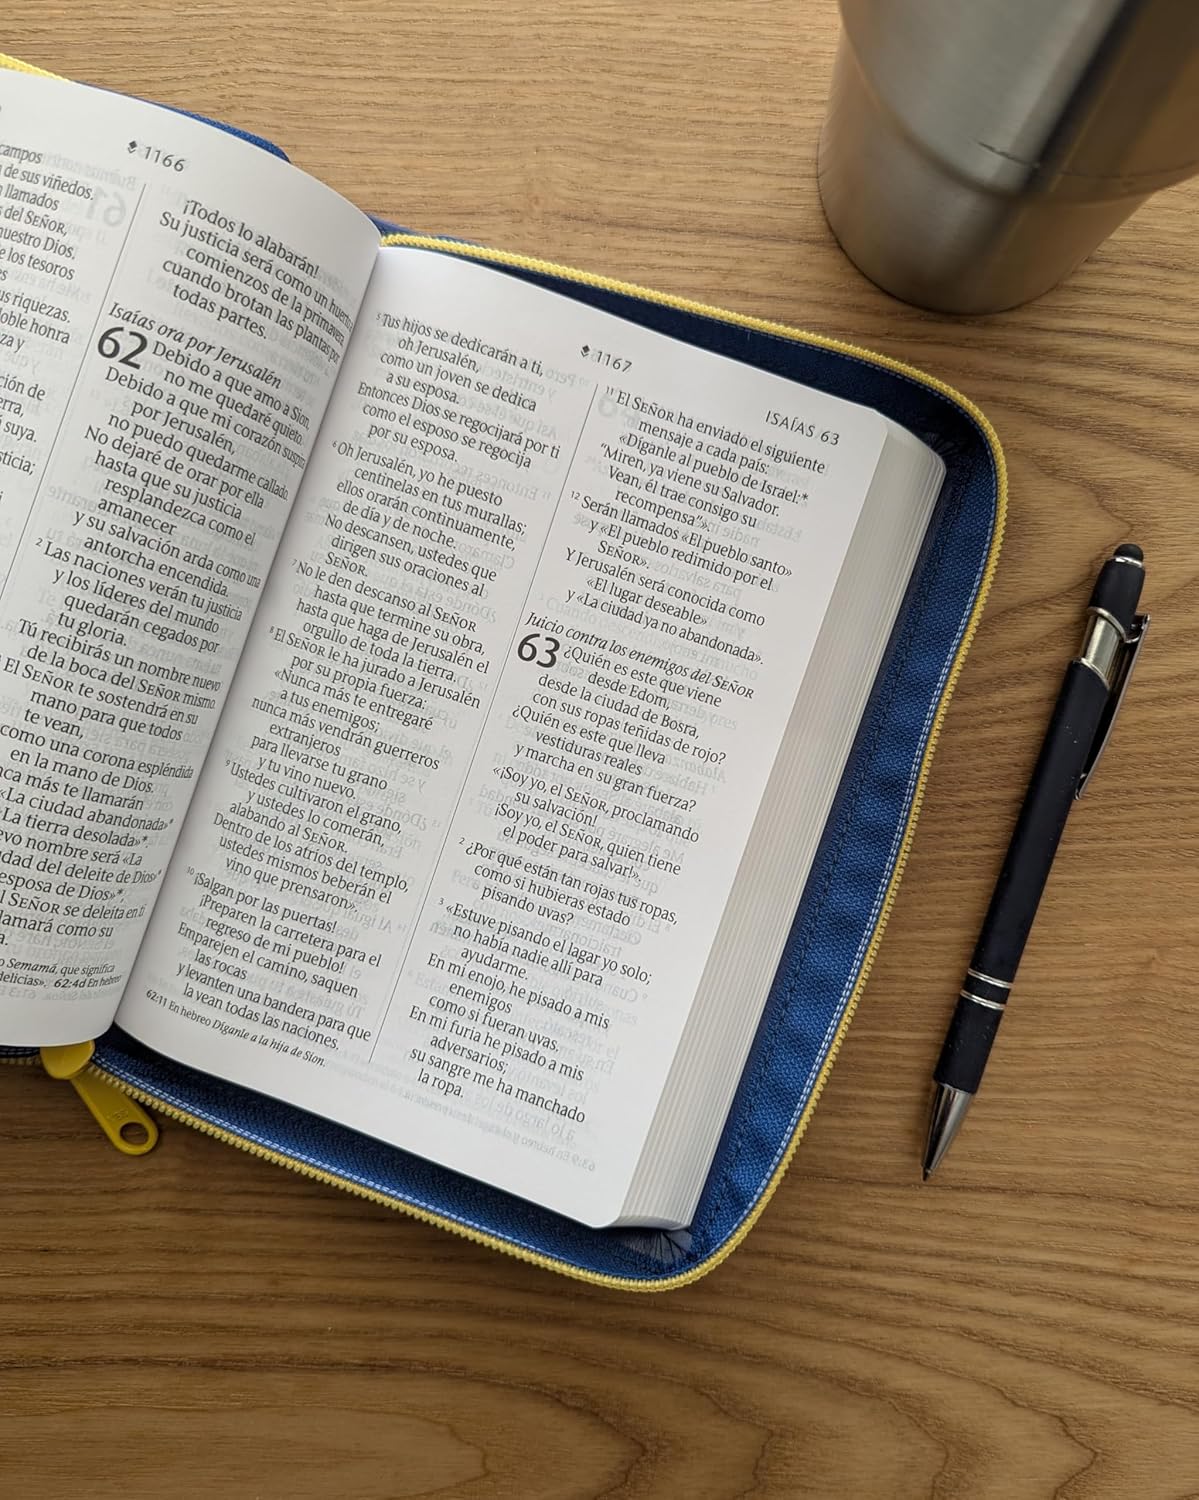 campos
de sus viñedos.
llamados
del SEÑOR,
nuestro Dios.
de los tesoros
riquezas.
doble honra
y
ción de
suya.
1166
¡Todos lo alabarán!
Su justicia será como un huerto
comienzos de la primavera,
cuando brotan las plantas por
todas partes.
Isaías ora por Jerusalén
62 Debido a que amo a Sion,
no me quedaré quieto.
Debido a que mi corazón suspira
por Jerusalén,
no puedo quedarme callado.
No dejaré de orar por ella
hasta que su justicia
resplandezca como el
amanecer
y su salvación arda como una
antorcha encendida.
2 Las naciones verán tu justicia
y los líderes del mundo
quedarán cegados por
tu gloria.
Tú recibirás un nombre nuevo
de la boca del SEÑOR mismo.
El SEÑOR te sostendrá en su
mano para que todos
te vean,
como una corona espléndida
en la mano de Dios.
más te llamarán
«La ciudad abandonada»*
«La tierra desolada»*.
nombre será «La
ciudad del deleite de Dios»*
esposa de Dios»*,
SEÑOR se deleita en ti
llamará como su
Semamá, que significa
62:4d En hebreo
1167
ISAÍAS 63
5 Tus hijos se dedicarán a ti,
oh Jerusalén,
como un joven se dedica
a su esposa.
Entonces Dios se regocijará por ti
como el esposo se regocija
por su esposa.
6 Oh Jerusalén, yo he puesto
centinelas en tus murallas;
ellos orarán continuamente,
de día y de noche.
No descansen, ustedes que
dirigen sus oraciones al
SEÑOR.
7 No le den descanso al SEÑOR
hasta que termine su obra,
hasta que haga de Jerusalén el
orgullo de toda la tierra.
8 El SEÑOR le ha jurado a Jerusalén
por su propia fuerza:
«Nunca más te entregaré
a tus enemigos;
nunca más vendrán guerreros
extranjeros
para llevarse tu grano
y tu vino nuevo.
9 Ustedes cultivaron el grano,
y ustedes lo comerán,
alabando al SEÑOR.
Dentro de los atrios del templo,
ustedes mismos beberán el
vino que prensaron».
10 ¡Salgan por las puertas!
¡Preparen la carretera para el
regreso de mi pueblo!
Emparejen el camino, saquen
las rocas
y levanten una bandera para que
la vean todas las naciones.
62:11 En hebreo Díganle a la hija de Sion.
11 El SEÑOR ha enviado el siguiente
mensaje a cada país:
«Díganle al pueblo de Israel:*
“Miren, ya viene su Salvador.
Vean, él trae consigo su
recompensa”».
12 Serán llamados «El pueblo santo»
y «El pueblo redimido por el
SEÑOR».
Y Jerusalén será conocida como
«El lugar deseable»
y «La ciudad ya no abandonada».
Juicio contra los enemigos del SEÑOR
63 ¿Quién es este que viene
desde Edom,
desde la ciudad de Bosra,
con sus ropas teñidas de rojo?
¿Quién es este que lleva
vestiduras reales
y marcha en su gran fuerza?
«¡Soy yo, el SEÑOR, proclamando
su salvación!
¡Soy yo, el SEÑOR, quien tiene
el poder para salvar!».
2 ¿Por qué están tan rojas tus ropas,
como si hubieras estado
pisando uvas?
3 «Estuve pisando el lagar yo solo;
no había nadie allí para
ayudarme.
En mi enojo, he pisado a mis
enemigos
como si fueran uvas.
En mi furia he pisado a mis
adversarios;
su sangre me ha manchado
la ropa.